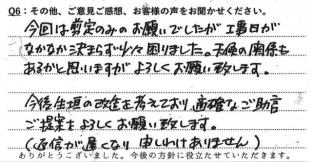 Q6：その他、ご意見ご感想、お客様の声をお聞かせください。
今回は剪定のみのお願いでしたが工事日が
なかなか決まらず少々困りました。天候の関係も
あるかと思いますが よろしくお願い致します。
今後生垣の改造も考えており、高確なご助言
ご提案もよろしくお願い致します。
(返信が遅くなり 申しわけありません)
ありがとうございました。今後の方針に役立たせていただきます。